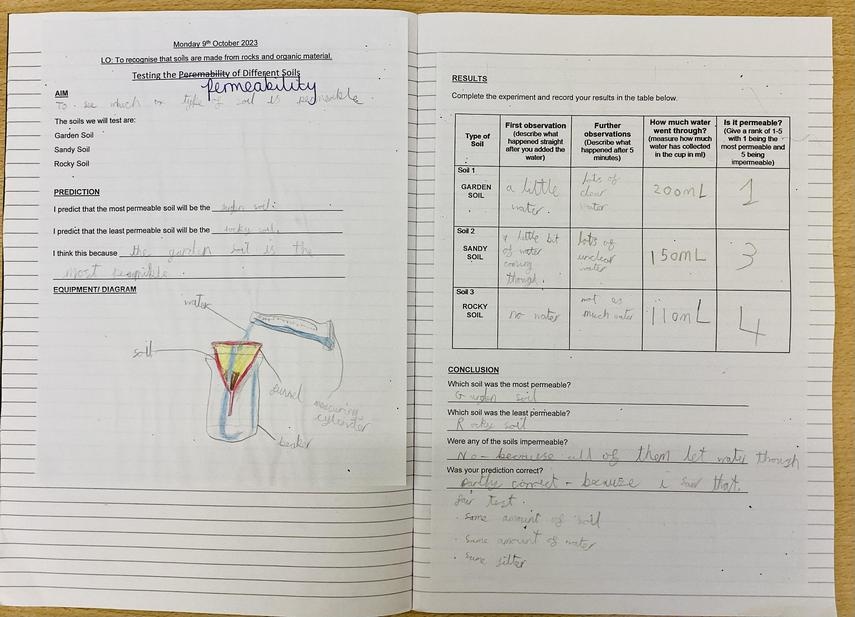 Monday 9th October 2023
LO: To recognise that soils are made from rocks and organic material.
Testing the Peremability of Different Soils
permeability
AIM
To see which type of soil is
The soils we will test are:
Garden Soil
Sandy Soil
Rocky Soil
PREDICTION
I predict that the most permeable soil will be the garden soil.
I predict that the least permeable soil will be the rocky soil.
I think this because the garden soil is the
most
EQUIPMENT/ DIAGRAM
water
soil
funnel
cylinder
beaker
RESULTS
Complete the experiment and record your results in the table below.
Type of Soil
First observation (describe what happened straight after you added the water)
Further observations (Describe what happened after 5 minutes)
How much water went through? (measure how much water has collected in the cup in ml)
Is it permeable? (Give a rank of 1-5 with 1 being the most permeable and 5 being impermeable)
Soil 1
GARDEN SOIL
a little water.
lots of clear water
200mL
1
Soil 2
SANDY SOIL
a little bit of water coming though.
lots of unclear water
150mL
3
Soil 3
ROCKY SOIL
no water
not as much water
110mL
4
CONCLUSION
Which soil was the most permeable?
Garden soil
Which soil was the least permeable?
Rocky soil
Were any of the soils impermeable?
No - because all of them let water though
Was your prediction correct?
partly correct - becauze i saw that.
fair test.
· Same amount of soil
· Same amount of water
· Same filter